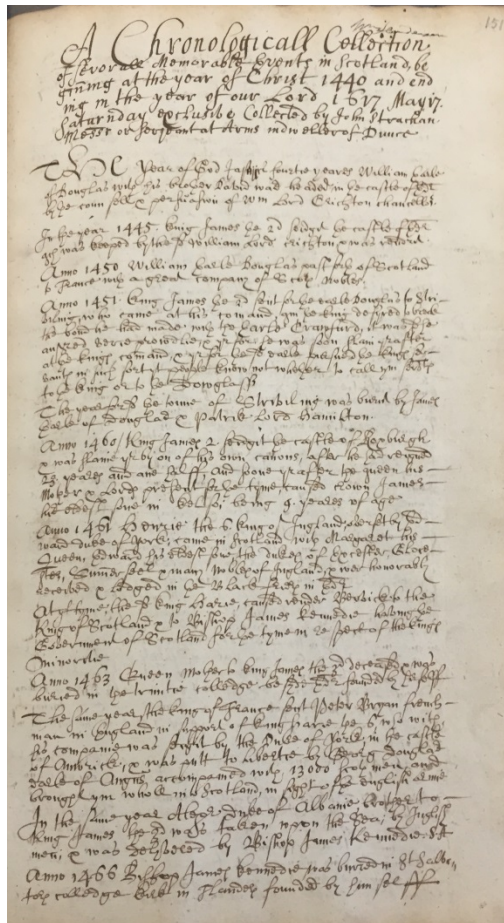 151
A Chronologicall Collection
of severall Memorable Events in Scotland, be
gining at the year of Christ 1440 and end
ing in the year of our Lord 1617 May 17.
Saturnday exclusive Collected by John Strachan
Messr or serjeant at Arms indweller of Dunce
THE year of God fourtie yeares William Earle
of Douglas with his brother David was headed in the castle of Edr
by the counsell & perswasion of Wm Lord Crichton chanceller.
In the year 1445. King James the 2d seidged the castle of Edr
was keeped by the sd William Lord Crichton & was
Anno 1450 William Earle Douglas past furth of Scotland
to France with a great company of Scots Nobles.
Anno 1451. King James the 2d sent for the earle Douglas to Stri-
viling, who came at his comand, qm the king desyred to break
the band he had made with the Earle Craufurd, it was
ansred verie proudlie, & yrfor he was soon slain yrafter
at the kings comand, & yrfor
in such sort yt people knew not whether to call ym
to the king or to the Dowglass
The year the toune of Striviling was burnt by James
Earle of Douglas & Patrik Lord Hamilton.
Anno 1460 King James 2 seidgit the castle of Roxburgh
& was slaine yr by on of his own canons, after he had reigned
23 yeares and ane half, And soone yrafter the queen his
Mother & Lords present for the tyme, caused crown James
his eldest sone in Kelso being 9 yeares of age
Anno 1461 Henrie the 6 king of England, overset by Ed-
ward duke of York, came in Scotland with Margaret his
Queen, Edward his eldest sone, the dukes of Excester, Gloce
ster, Summerset & many Nobles of England, & wer honorably
received & lodged in the Black friers in Edr
At tyme, the sd king Harie, caused render Berwick to the
King of Scotland & to Bishop James Kennedie having the
Goverment of Scotland for the tyme in respect of the kings
minoritie
Anno 1463 Queen Mother to king James the 3d deceased & was
buried in the trinitie colledge besyde Edr founded by
The same year, the king of France sent Peter Bryan french-
man in England in support of king Harie the 6, who with
his companie was by the Duke of York, in the castle
of Anwick, & was putt to libertie by Georg Douglas
Earle of Angus, accompanied with 13000 Scots men, and
brought ym whole in Scotland, in sight of the English armie
In the same year Alexr. Duke of Albanie brother to
King James the 3d was taken upon the Sea, by Inglish
men, & was delivered by Bishop James Kennedie
Anno 1466 Bishop James Kennedie was buried in St Salva-
tors colledge Kirk in founded by himself